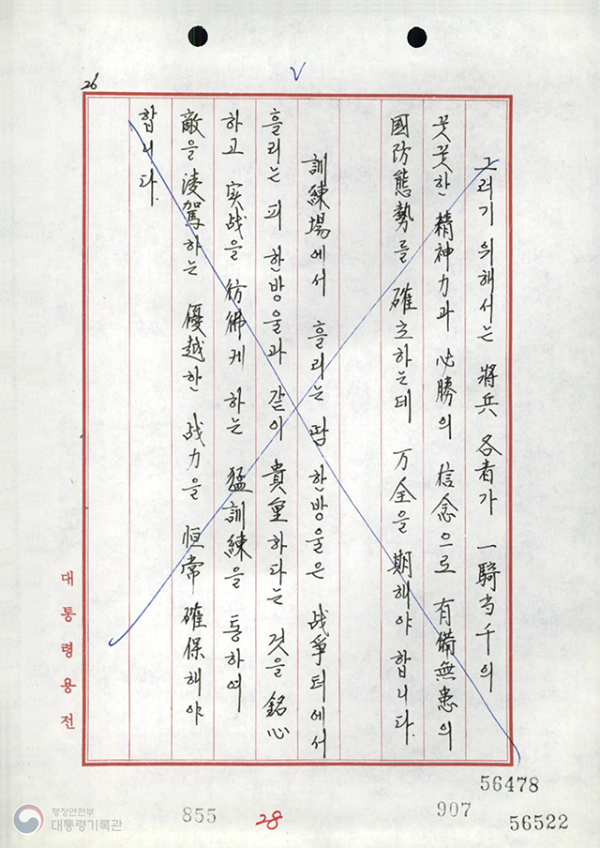 26
V
그러기 위해서는 將兵 各者가 一騎当千의
꿋꿋한 精神力과 必勝의 信念으로 有備無患의
國防態勢를 確立하는데 万全을 期해야 합니다.
訓練場에서 흘리는 땀 한방울은 战爭터에서
흘리는 피 한방울과 같이 貴重하다는 것을 銘心
하고 实战을 彷彿케 하는 猛訓練을 통하여
敵을 凌駕하는 優越한 战力을 恒常 確保해야
합니다.
대통령용전
56478
855
28
907
56522
행정안전부
대통령기록관